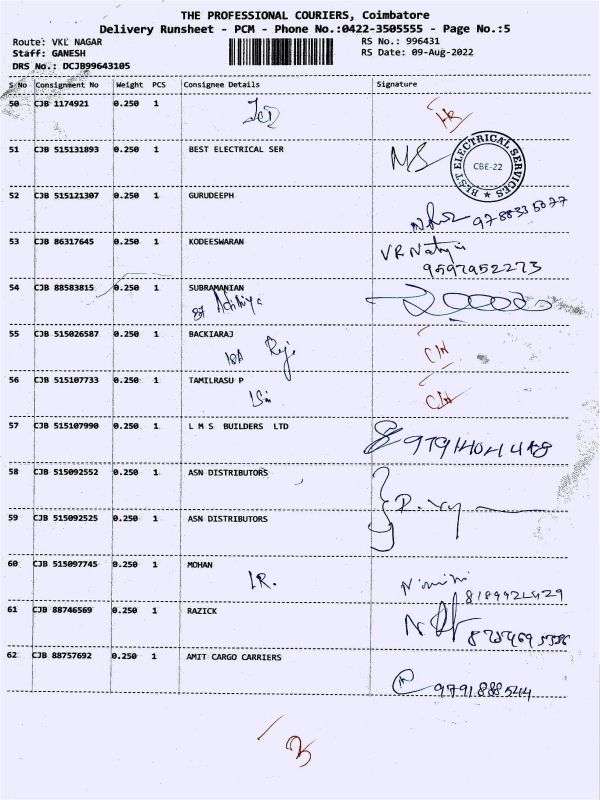 THE PROFESSIONAL COURIERS, Coimbatore
Delivery Runsheet - PCM - Phone No.:0422-3505555 - Page No.:5
Route: VKL NAGAR
Staff: GANESH
DRS No.: DCJB99643105
RS No.: 996431
RS Date: 09-Aug-2022
S No Consignment No Weight PCS Consignee Details Signature
50 CJB 1174921 0.250 1
51 CJB 515131893 0.250 1 BEST ELECTRICAL SER
BEST ELECTRICAL SERVICES
CBE-22
52 CJB 515121307 0.250 1 GURUDEEPH
53 CJB 86317645 0.250 1 KODEESWARAN
9597952273
54 CJB 88583815 0.250 1 SUBRAMANIAN
55 CJB 515026587 0.250 1 BACKIARAJ
56 CJB 515107733 0.250 1 TAMILRASU P
57 CJB 515107990 0.250 1 L M S BUILDERS LTD
58 CJB 515092552 0.250 1 ASN DISTRIBUTORS
59 CJB 515092525 0.250 1 ASN DISTRIBUTORS
60 CJB 515097745 0.250 1 MOHAN
61 CJB 88746569 0.250 1 RAZICK
62 CJB 88757692 0.250 1 AMIT CARGO CARRIERS
9791888544